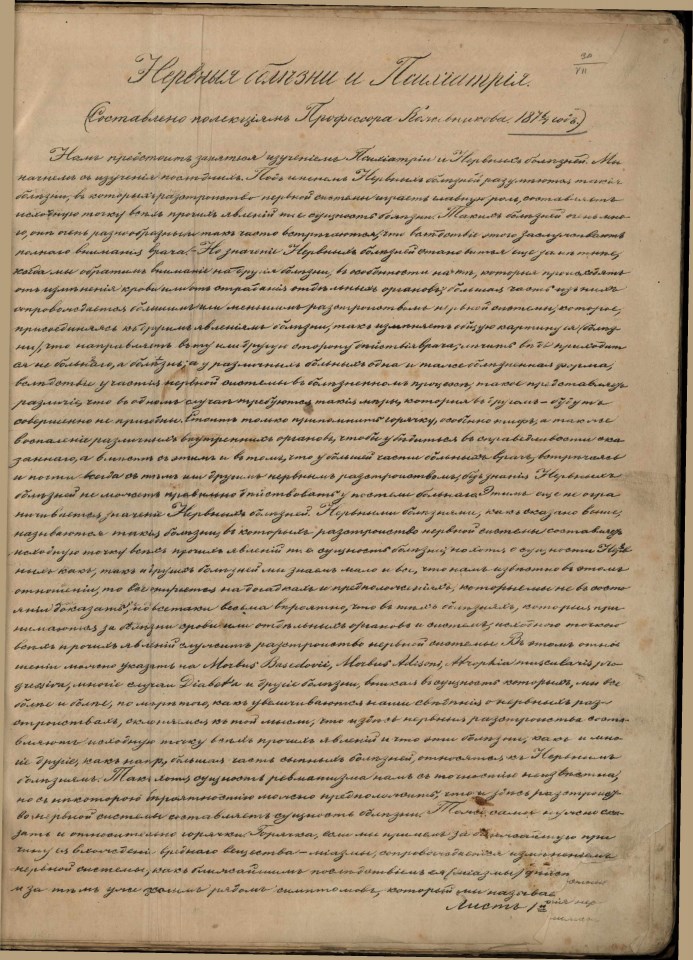 30
VII
Нервныя болѣзни и Психіатрія.
(Составлено по лекціямъ Профессора Кожевникова. 187 годъ.)
Намъ предстоитъ заняться изученіемъ Психіатріи и Нервныхъ болѣзней. Мы
начнемъ съ изученія послѣднихъ. Подъ именемъ Нервныхъ болѣзней разумѣются такія
болѣзни, въ которыхъ разстройство нервной системы играетъ главную роль, составляетъ
исходную точку всѣхъ прочихъ явленій т. е. сущность болѣзни. Такихъ болѣзней очень мно-
го, онѣ очень разнообразны и такъ часто встрѣчаются, что вслѣдствіе этого заслуживаютъ
полнаго вниманія врача. Но значеніе Нервныхъ болѣзней становится еще замѣтнѣе,
когда мы обратимъ вниманіе на другія болѣзни, въ особенности на тѣ, которыя происходятъ
отъ измѣненія крови или отъ страданія отдѣльныхъ органовъ; большая часть изъ нихъ
сопровождается большимъ или меньшимъ разстройствомъ нервной системы, которое,
присоединяясь къ другимъ явленіямъ болѣзни, такъ измѣняетъ общую картину ея (болѣз-
ни), что направляетъ въ ту или другую сторону дѣйствія врача; лечить вѣдь приходит-
ся не болѣзнь, а больнаго, а у различныхъ больныхъ одна и таже болѣзненная форма,
вслѣдствіе участія нервной системы въ болѣзненномъ процессѣ, такое представляетъ
различіе, что въ одномъ случаѣ требуются такія мѣры, которыя въ другомъ – будутъ
совершенно не пригодны. Стоитъ только припомнить горячку, особенно тифъ, а также
воспаленіе различныхъ внутреннихъ органовъ, чтобы убѣдиться въ справедливости ска-
заннаго, а вмѣстѣ съ этимъ и въ томъ, что у большей части больныхъ врачъ, встрѣчаясь
и почти всегда съ тѣмъ или другимъ нервнымъ разстройствомъ, безъ знанія Нервныхъ
болѣзней не можетъ правильно дѣйствовать у постели больнаго. Этимъ еще не огра-
ничивается значеніе Нервныхъ болѣзней. Нервными болѣзнями, какъ сказано выше,
называются такія болѣзни, въ которыхъ разстройство нервной системы составляетъ
исходную точку всѣхъ прочихъ явленій т. е. сущность болѣзни; но хотя о сущности Нерв-
ныхъ какъ, такъ и другихъ болѣзней мы знаемъ мало и все, что намъ извѣстно въ этомъ
отношеніи, то все опирается на догадкахъ и предположеніяхъ, которые мы не въ состо-
яніи доказать, но всетаки весьма вѣроятно, что въ тѣхъ болѣзняхъ, которыя при-
нимаются за болѣзни крови или отдѣльныхъ органовъ и системъ, исходною точкою
всѣхъ прочихъ явленій служитъ разстройство нервной системы. Въ этомъ отно-
шеніи можно указать на Morbus Basedovii, Morbus Adisoni, Atrophia muscularis pro-
gressiva, многіе случаи Diabet'а и другіе болѣзни, вникая въ сущность которыхъ, мы все
болѣе и болѣе, по мѣрѣ того, какъ увеличиваются наши свѣдѣнія о нервныхъ раз-
стройствахъ, склоняемся къ той мысли, что и здѣсь нервныя разстройства соста-
вляютъ исходную точку всѣхъ прочихъ явленій и что эти болѣзни, какъ и мно-
гія другіе, какъ напр., большая часть сыпныхъ болѣзней, относятся къ Нервнымъ
болѣзнямъ. Такъ хотя сущность ревматизма намъ съ точностію неизвѣстна,
но съ нѣкоторою вѣроятностію можно предположить, что и здѣсь разстройст-
во нервной системы составляетъ сущность болѣзни. Тоже самое нужно ска-
зать и относительно горячки. Горячка, если мы примемъ за ближайшую при-
чину ея вхожденіе вреднаго вещества – міазмы, сопровождается измѣненіемъ
нервной системы, какъ ближайшимъ послѣдствіемъ ея (міазмы)
и за тѣмъ уже цѣлымъ рядомъ симптомовъ, который мы называе
Листъ 1й